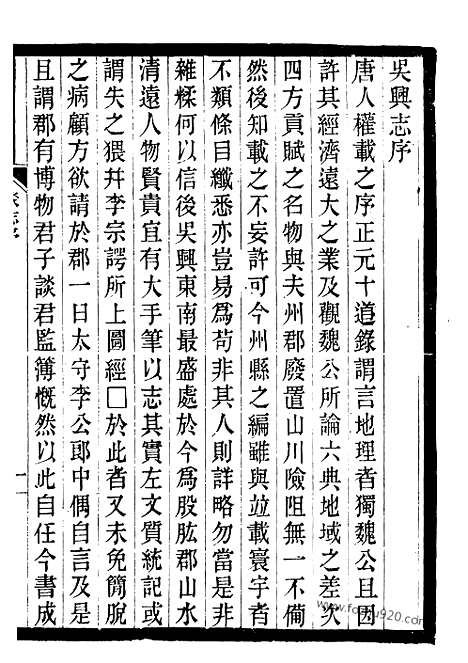 吳興志序
唐人權載之序正元十道錄謂言地理者獨魏公且因
許其經濟遠大之業及觀魏公所論六典地域之差次
四方貢賦之名物與夫州郡廢置山川險阻無一不備
然後知載之不妄許可今州縣之編雖與並載寰宇者
不類條目纖悉亦豈易爲苟非其人則詳略勿當是非
雜糅何以信後吳興東南最盛處於今爲股肱郡山水
清遠人物賢貴宜有大手筆以志其實左文質統記或
謂失之猥幷李宗諤所上圖經□於此者又未免簡脫
之病顧方欲請於郡一日太守李公郎中偶自言及是
且謂郡有博物君子談君監簿慨然以此自任今書成
一
www.fozhu920.com